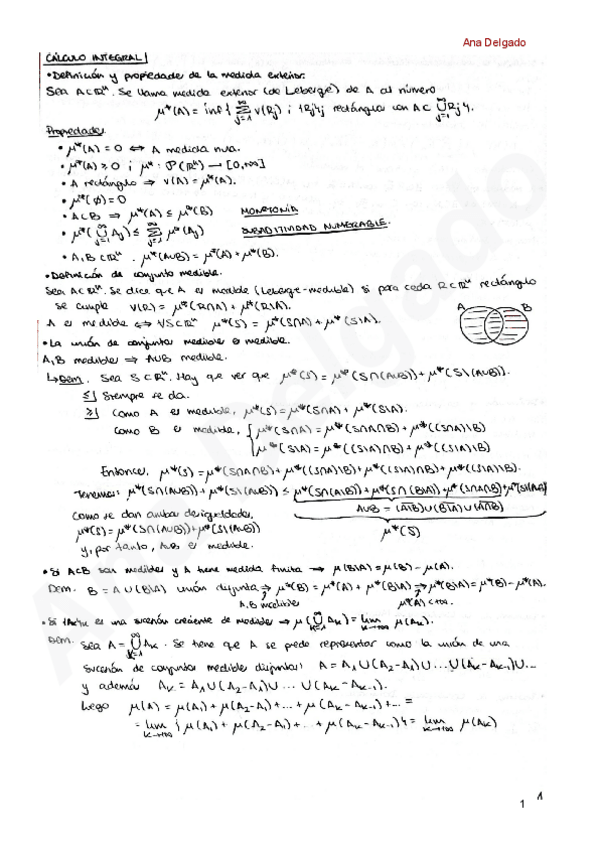 Ana Delgado
CÁLCULO INTEGRAL
• Definición y propiedades de la medida exterior.
Sea A⊂ℝⁿ. Se llama medida exterior (de Lebesge) de A al número
μ*(A) = inf { ∑_{j=1}^{∞} v(Rj) ; {Rj}j rectángulos con A ⊂ ⋃_{j=1}^{∞} Rj }.
Propiedades
• μ*(A) = 0 ⟺ A medida nula.
• μ*(A) ≥ 0 ; μ* : P(ℝⁿ) → [0,+∞]
• A rectángulo ⇒ v(A) = μ*(A).
• μ*(∅) = 0
• A⊂B ⇒ μ*(A) ≤ μ*(B) MONOTONÍA
• μ*(⋃_{j=1}^{∞} Aj) ≤ ∑_{j=1}^{∞} μ*(Aj) SUBADITIVIDAD NUMERABLE.
• A,B ⊂ ℝⁿ . μ*(A∪B) = μ*(A) + μ*(B).
• Definición de conjunto medible.
Sea A⊂ℝⁿ. Se dice que A es medible (Lebesge-medible) si para cada R⊂ℝⁿ rectángulo
se cumple v(R) = μ*(R∩A) + μ*(R\A).
A es medible ⟺ ∀S⊂ℝⁿ μ*(S) = μ*(S∩A) + μ*(S\A).
A B
• La unión de conjuntos medibles es medible.
A,B medibles ⇒ A∪B medible.
↳ Dem. Sea S⊂ℝⁿ. Hay que ver que μ*(S) = μ*(S∩(A∪B)) + μ*(S\(A∪B)).
≤| Siempre se da.
≥| Como A es medible, μ*(S) = μ*(S∩A) + μ*(S\A).
Como B es medible, { μ*(S∩A) = μ*(S∩A∩B) + μ*((S∩A)\B)
μ*(S\A) = μ*((S\A)∩B) + μ*((S\A)\B)
Entonces, μ*(S) = μ*(S∩A∩B) + μ*((S∩A)\B) + μ*((S\A)∩B) + μ*((S\A)\B).
Tenemos: μ*(S∩(A∪B)) + μ*(S\(A∪B)) ≤ μ*(S∩(A\B)) + μ*(S∩(B\A)) + μ*(S∩A∩B)
Como se dan ambas desigualdades, A∪B = (A\B)∪(B\A)∪(A∩B)
μ*(S) = μ*(S∩(A∪B)) + μ*(S\(A∪B)) μ*(S)
y, por tanto, A∪B es medible.
• Si A⊂B son medibles y A tiene medida finita → μ(B\A) = μ(B) − μ(A).
Dem. B = A∪(B\A) unión disjunta ⇒ μ*(B) = μ*(A) + μ*(B\A) ⇒ μ*(B\A) = μ*(B) − μ*(A).
A,B medibles μ*(A) < +∞.
• Si {Ak}k es una sucesión creciente de medibles → μ(⋃_{k=1}^{∞} Ak) = lim_{k→+∞} μ(Ak).
Dem. Sea A = ⋃_{k=1}^{∞} Ak . Se tiene que A se puede representar como la unión de una
sucesión de conjuntos medibles disjuntos: A = A₁∪(A₂−A₁)∪...∪(Ak−Ak₋₁)∪...
y además Ak = A₁∪(A₂−A₁)∪...∪(Ak−Ak₋₁).
Lego μ(A) = μ(A₁) + μ(A₂−A₁) + ... + μ(Ak−Ak₋₁) + ... =
= lim_{k→+∞} { μ(A₁) + μ(A₂−A₁) + ... + μ(Ak−Ak₋₁) } = lim_{k→+∞} μ(Ak)
1
1